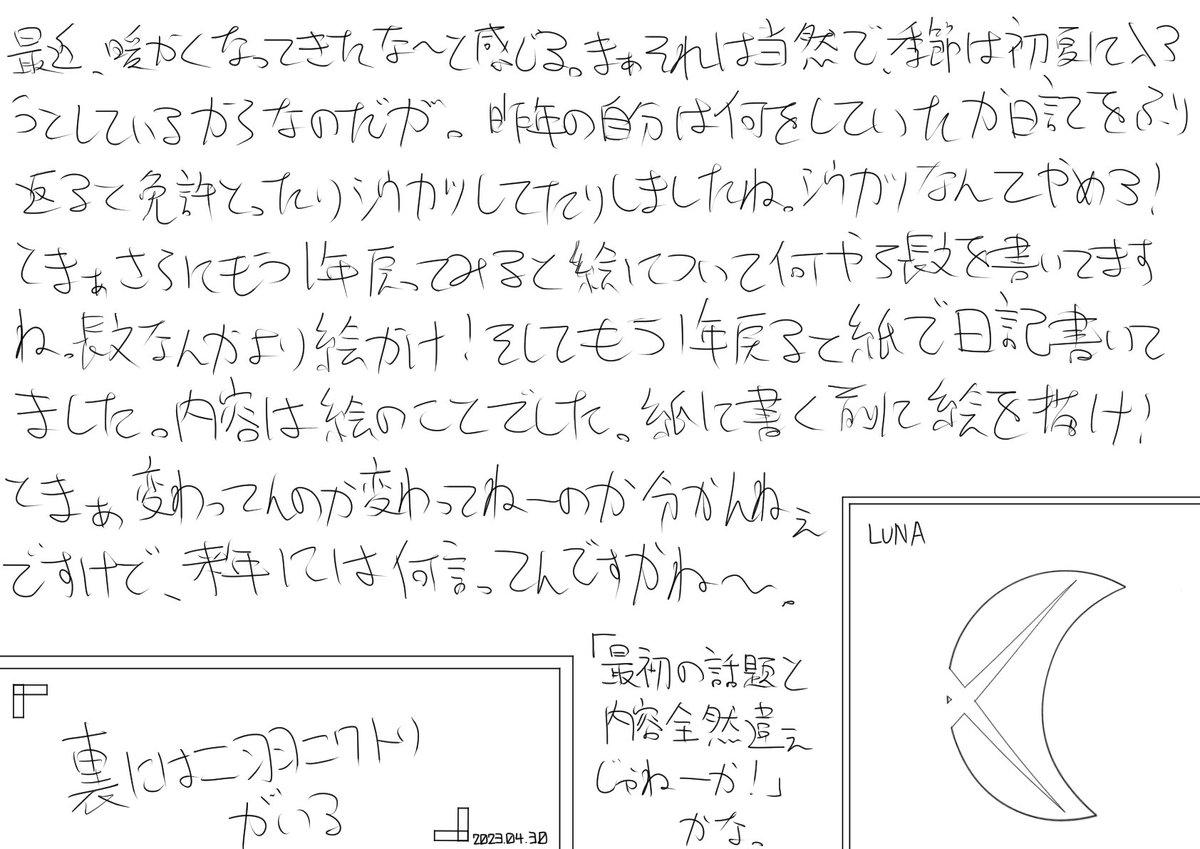 最近、暖かくなってきたな〜と感じる。まぁそれは当然で、季節は初夏に入ろ
うとしているからなのだが。昨年の自分は何をしていたか日記をふり
返ると免許とったりジウカツしてたりしましたね。ジウカツなんてやめろ!
てまぁさらにもう1年戻ってみると絵について何やら長文を書いてます
ね。長文なんかより絵かけ!そしてもう1年戻ると紙で日記書いて
ました。内容は絵のことでした。紙に書く前に絵を描け!
てまぁ変わってんのか変わってねーのか分かんねぇ
ですけど、来年には何言ってんですかね〜。
「最初の話題と
内容全然違ぇ
じゃねーか!」
かな。
LUNA
裏には二羽ニワトリ
がいる
2023.04.30